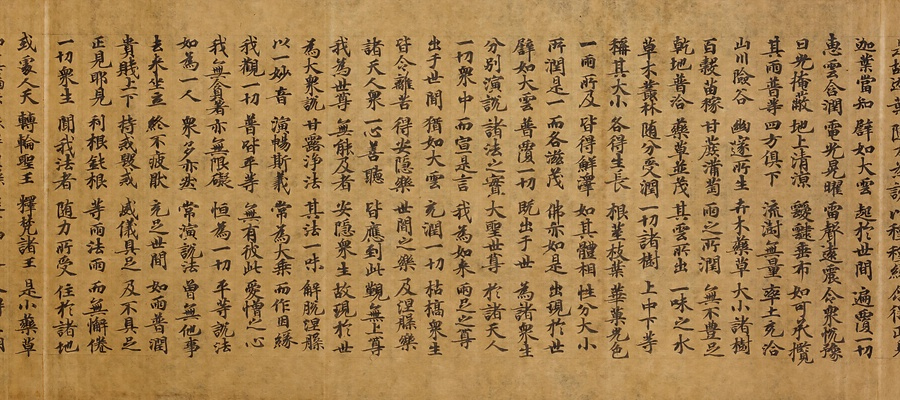 迦葉當知 譬如大雲 起於世間 遍覆一切
惠雲含潤 電光晃曜 雷聲遠震 令衆悅豫
日光掩蔽 地上清涼 靉靆垂布 如可承攬
其雨普等 四方俱下 流澍無量 率土充洽
山川險谷 幽邃所生 卉木藥草 大小諸樹
百穀苗稼 甘蔗蒲萄 雨之所潤 無不豐足
乾地普洽 藥草並茂 其雲所出 一味之水
草木叢林 随分受潤 一切諸樹 上中下等
稱其大小 各得生長 根莖枝葉 華菓光色
一雨所及 皆得鮮澤 如其體相 性分大小
所潤是一 而各滋茂 佛亦如是 出現於世
譬如大雲 普覆一切 既出于世 為諸衆生
分別演說 諸法之實 大聖世尊 於諸天人
一切衆中 而宣是言 我為如來 兩足之尊
出于世間 猶如大雲 充潤一切 枯槁衆生
皆令離苦 得安隱樂 世間之樂 及涅槃樂
諸天人衆 一心善聽 皆應到此 覲無上尊
我為世尊 無能及者 安隱衆生 故現於世
為大衆說 甘露淨法 其法一味 解脫涅槃
以一妙音 演暢斯義 常為大乘 而作因緣
我觀一切 普皆平等 無有彼此 愛憎之心
我無貪著 亦無限礙 恒為一切 平等說法
如為一人 衆多亦然 常演說法 曾無他事
去來坐立 終不疲猒 充足世間 如雨普潤
貴賤上下 持戒毀戒 威儀具足 及不具足
正見耶見 利根鈍根 等雨法雨 而無懈倦
一切衆生 聞我法者 随力所受 住於諸地
或處人天 轉輪聖王 釋梵諸王 是小藥草